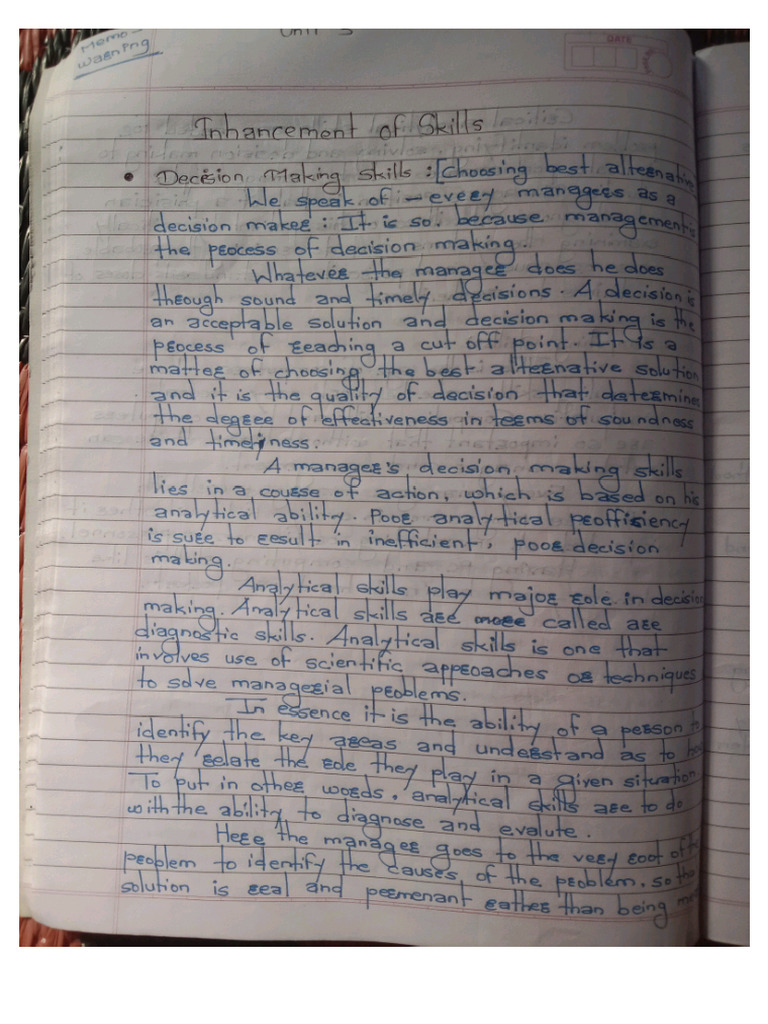 Memo-
Wagning
Unit 3
DATE
Inhancement of Skills
• Decesion Making Skills : [Choosing best alternative
We speak of - every managers as a
decision maker : It is so, because management is
the process of decision making.
Whatever the manager does he does
through sound and timely decisions. A decision is
an acceptable solution and decision making is the
process of reaching a cut off point. It is a
matter of choosing the best alternative solution
and it is the quality of decision that determines
the degree of effectiveness in terms of soundness
and timeliness.
A manager's decision making skills
lies in a course of action, which is based on his
analytical ability. Poor analytical proffisiency
is sure to result in inefficient, poor decision
making.
Analytical skills play major role in decision
making. Analytical skills are called are
diagnostic skills. Analytical skills is one that
involves use of scientific approaches or techniques
to solve managerial problems.
In essence it is the ability of a person to
identify the key areas and understand as to how
they relate the role they play in a given situation
To put in other words. analytical skills are to do
with the ability to diagnose and evalute.
Here the manager goes to the very root of
problem to identify the causes of the problem. so
solution is real and permenant rather than being